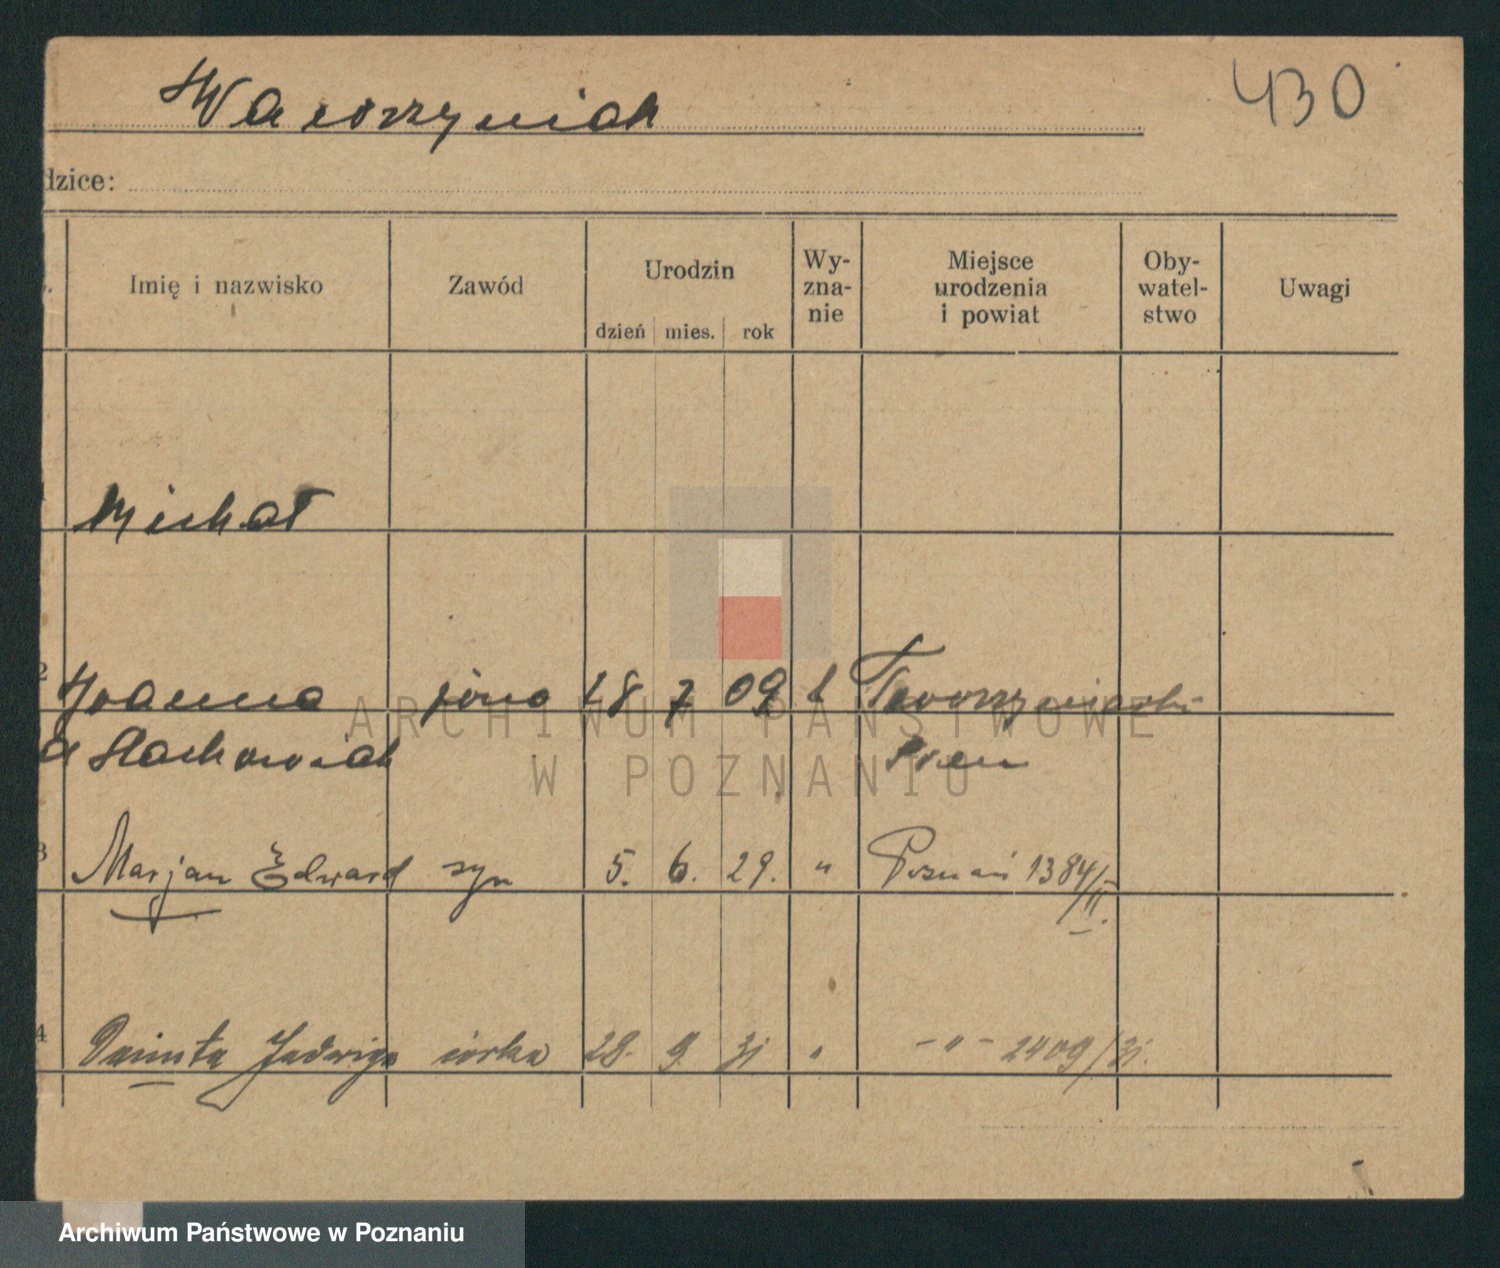 Wawrzyniak
430
dzice:
Imię i nazwisko Zawód Urodzin dzień mies. rok Wy-zna-nie Miejsce urodzenia i powiat Oby-watel-stwo Uwagi
Michał
2 Joanna żona 28 7 09 k
z Stachowiak
3 Marjan Edward syn 5. 6. 29. " Poznań 1384/II.
4 Danuta Jadwiga córka 28. 9. 31 " -"- 2409/31.
ARCHIWUM PAŃSTWOWE
W POZNANIU
Archiwum Państwowe w Poznaniu